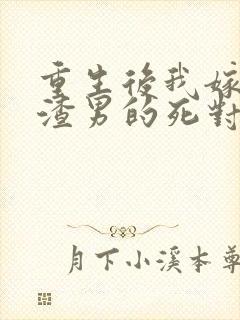 重生後我嫁
渣男的死對
月下小溪本尊